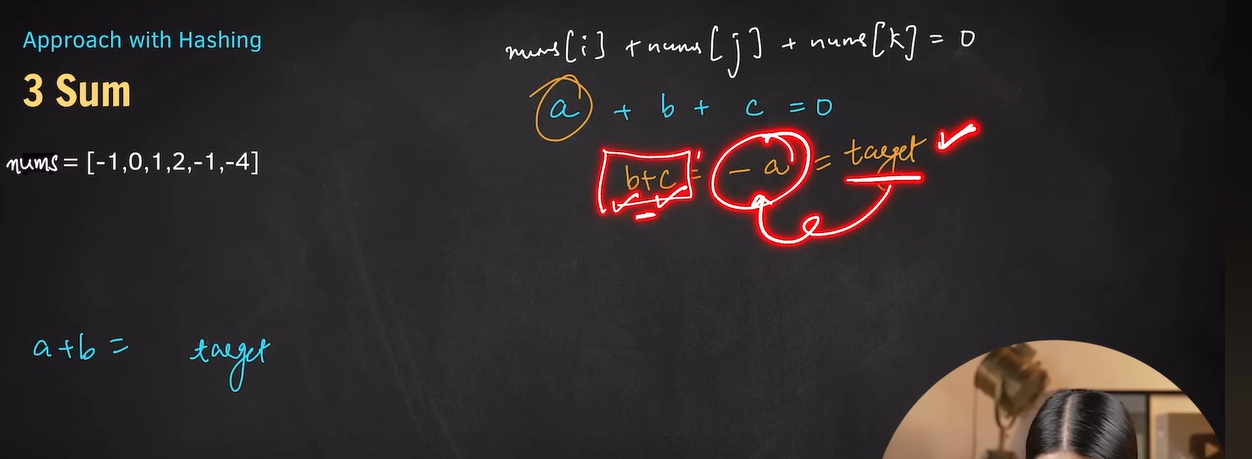 Approach with Hashing
3 Sum
nums = [-1,0,1,2,-1,-4]
nums[i] + nums[j] + nums[k] = 0
a + b + c = 0
b+c = -a = target
a+b = target